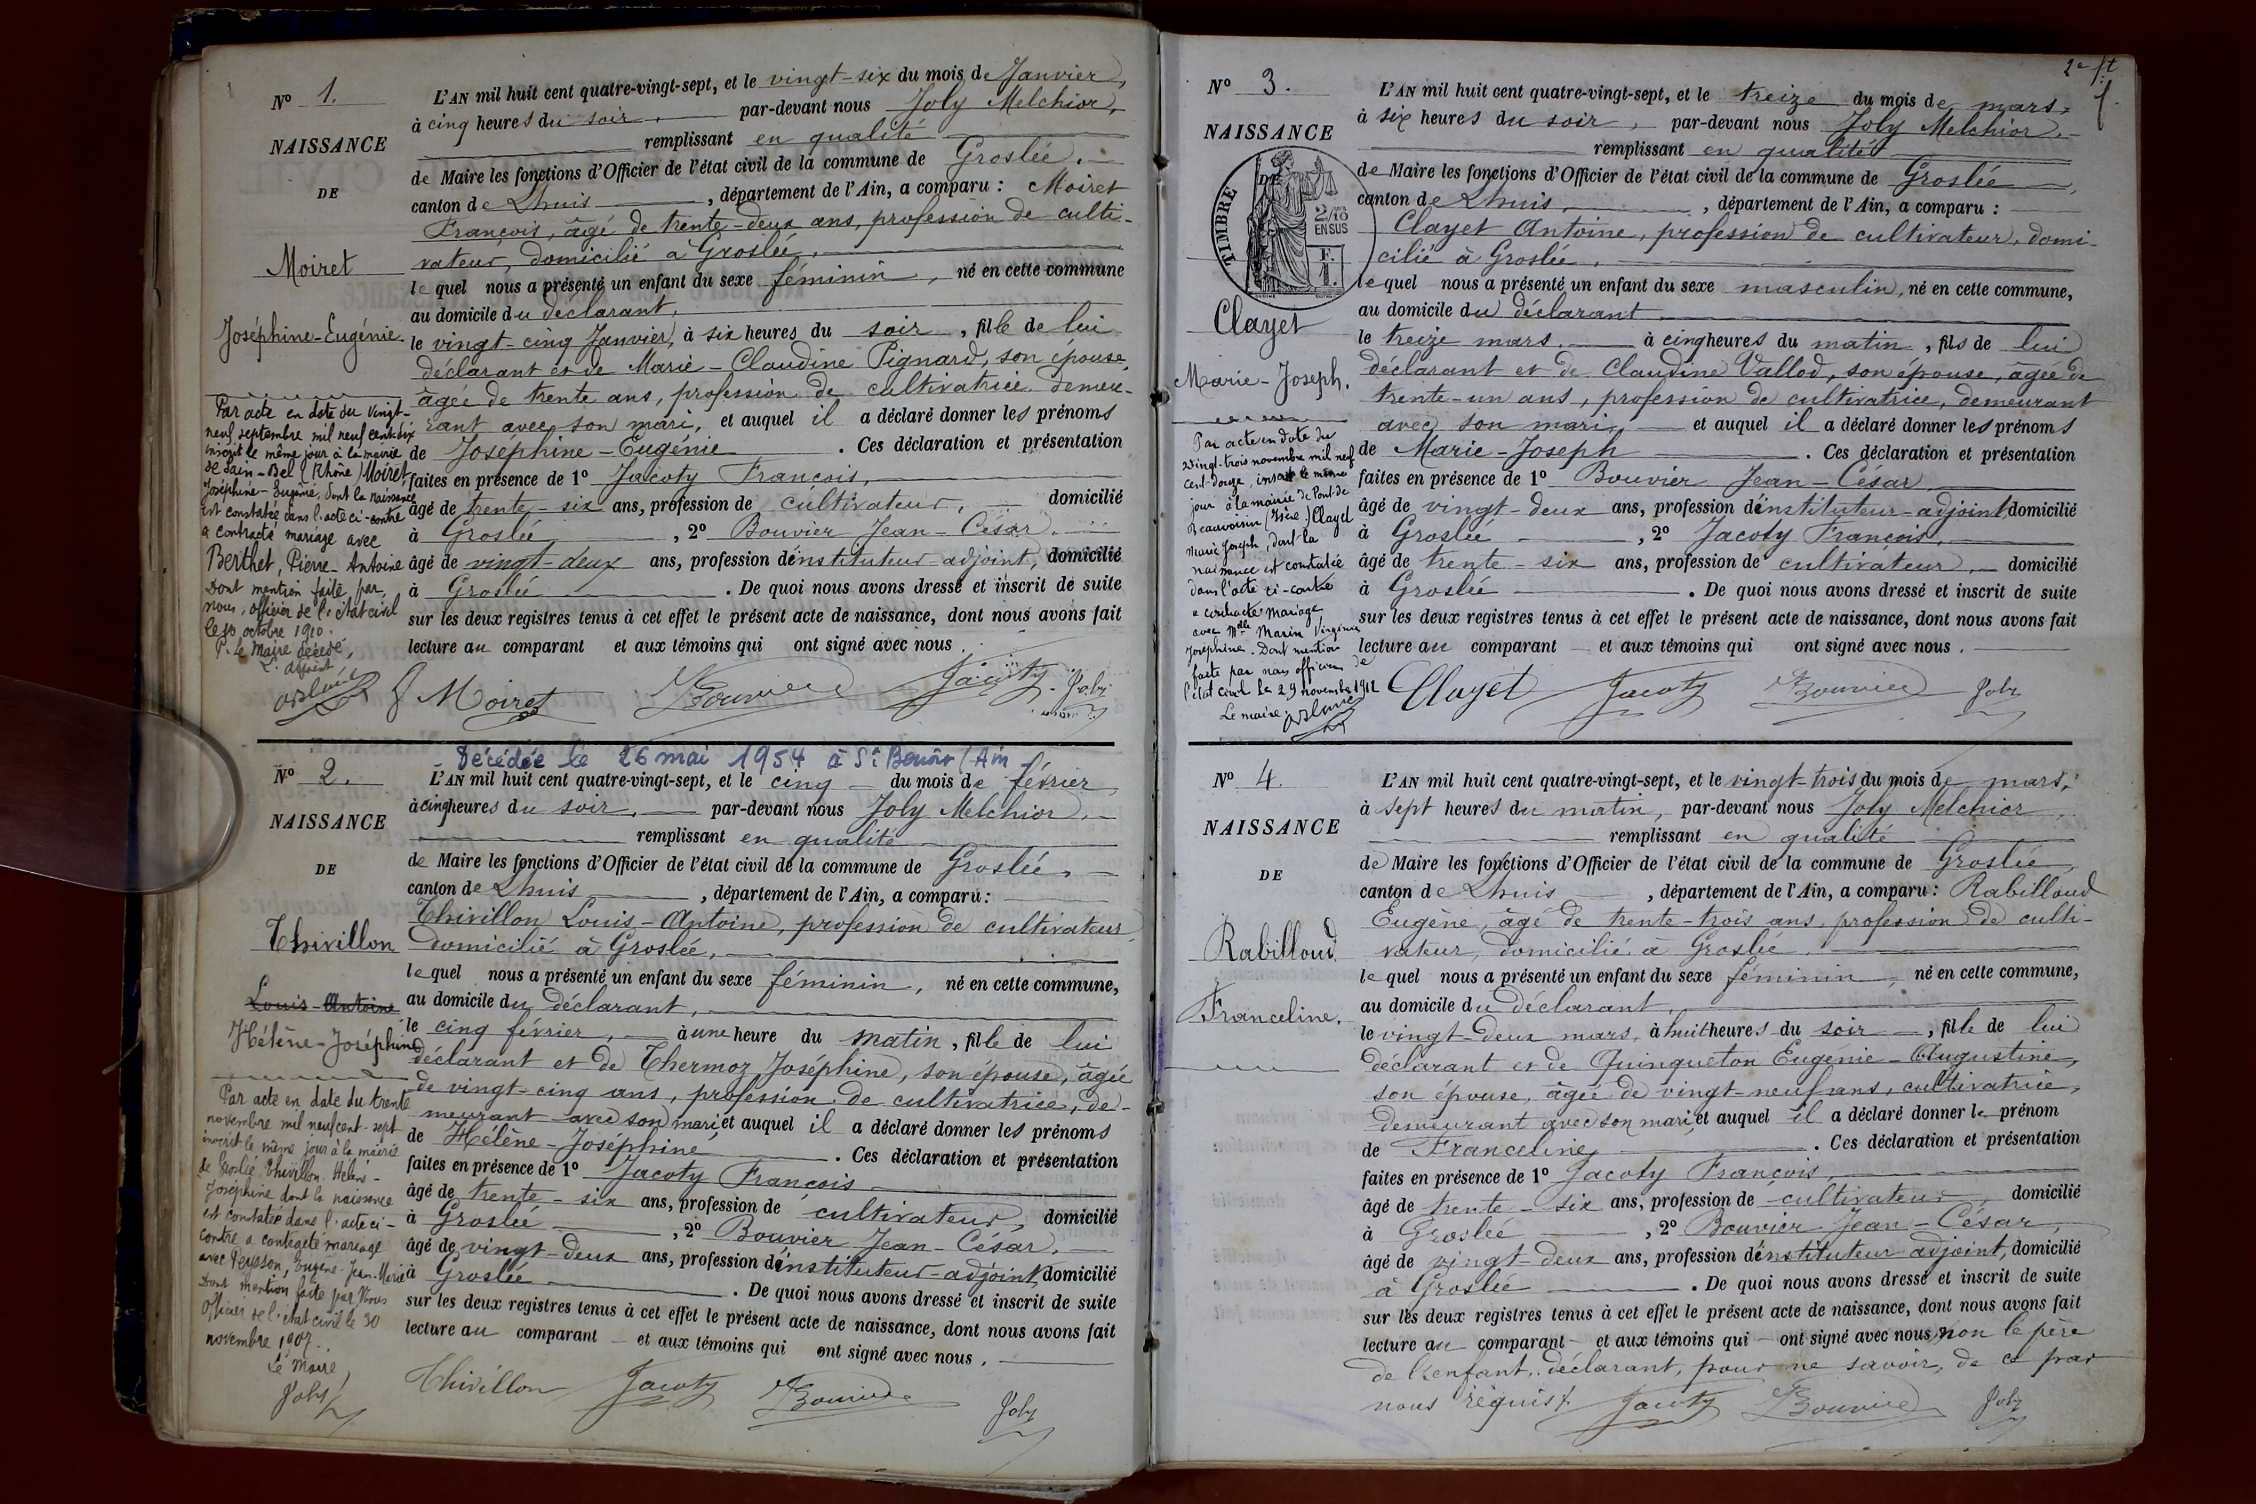 N° 1.
NAISSANCE
DE
Moiret
Joséphine-Eugénie.
Par acte en date du vingt-
neuf septembre mil neuf cent dix
inscrit le même jour à la mairie
de Sain-Bel (Rhône) Moiret
Joséphine-Eugénie, dont la naissance
est constatée dans l'acte ci-contre
a contracté mariage avec
Berthet, Pierre-Antoine
Dont mention faite par
nous, officier de l'état civil
le 10 octobre 1910.
P. le Maire décédé,
L'adjoint
L'AN mil huit cent quatre-vingt-sept, et le vingt-six du mois de Janvier,
à cinq heures du soir, par-devant nous Joly Melchior,
remplissant en qualité
de Maire les fonctions d'Officier de l'état civil de la commune de Groslée.
canton de Lhuis, département de l'Ain, a comparu : Moiret
François, âgé de trente-deux ans, profession de culti-
vateur, domicilié à Groslée,
lequel nous a présenté un enfant du sexe féminin, né en cette commune
au domicile du déclarant,
le vingt-cinq Janvier, à six heures du soir, fille de lui
déclarant et de Marie-Claudine Pignard, son épouse,
âgée de trente ans, profession de cultivatrice demeu-
rant avec son mari, et auquel il a déclaré donner les prénoms
de Joséphine-Eugénie. Ces déclaration et présentation
faites en présence de 1° Jacoty François,
âgé de trente-six ans, profession de cultivateur, domicilié
à Groslée, 2° Bouvier Jean-César.
âgé de vingt-deux ans, profession d'instituteur-adjoint, domicilié
à Groslée. De quoi nous avons dressé et inscrit de suite
sur les deux registres tenus à cet effet le présent acte de naissance, dont nous avons fait
lecture au comparant et aux témoins qui ont signé avec nous.
Moiret Bouvier Jacoty Joly
Décédée le 26 mai 1954 à St Benoît (Ain
N° 2.
NAISSANCE
DE
Thivillon
Louis-Antoine
Hélène-Joséphine
Par acte en date du trente
novembre mil neuf cent-sept
inscrit le même jour à la mairie
de Groslée, Thivillon Hélène-
Joséphine dont la naissance
est constatée dans l'acte ci-
contre a contracté mariage
avec Peysson, Eugène-Jean-Marie
Dont mention faite par Nous
Officier de l'état civil le 30
novembre 1907.
Le Maire,
Joly
L'AN mil huit cent quatre-vingt-sept, et le cinq du mois de février,
à cinq heures du soir, par-devant nous Joly Melchior,
remplissant en qualité
de Maire les fonctions d'Officier de l'état civil de la commune de Groslée,
canton de Lhuis, département de l'Ain, a comparu :
Thivillon Louis-Antoine, profession de cultivateur
domicilié à Groslée,
lequel nous a présenté un enfant du sexe féminin, né en cette commune,
au domicile du déclarant,
le cinq février, à une heure du matin, fille de lui
déclarant et de Thermoz Joséphine, son épouse, âgée
de vingt-cinq ans, profession de cultivatrice, de-
meurant avec son mari et auquel il a déclaré donner les prénoms
de Hélène-Joséphine. Ces déclaration et présentation
faites en présence de 1° Jacoty François
âgé de trente-six ans, profession de cultivateur, domicilié
à Groslée, 2° Bouvier Jean-César.
âgé de vingt-deux ans, profession d'instituteur-adjoint, domicilié
à Groslée. De quoi nous avons dressé et inscrit de suite
sur les deux registres tenus à cet effet le présent acte de naissance, dont nous avons fait
lecture au comparant et aux témoins qui ont signé avec nous.
Thivillon Jacoty Bouvier Joly
N° 3.
NAISSANCE
DE
TIMBRE
2/10
EN SUS
F.
1.
Clayet
Marie-Joseph.
Par acte en date du
vingt-trois novembre mil neuf
cent-douze, inscrit le même
jour à la mairie de Pont-de
Beauvoisin (Isère) Clayet
Marie Joseph, dont la
naissance est constatée
dans l'acte ci-contre
a contracté mariage
avec Mlle Marin Virginie
Joséphine. Dont mention
faite par nous officier de
l'état civil le 29 novembre 1912
Le maire.
L'AN mil huit cent quatre-vingt-sept, et le treize du mois de mars,
à six heures du soir, par-devant nous Joly Melchior.
remplissant en qualité
de Maire les fonctions d'Officier de l'état civil de la commune de Groslée,
canton de Lhuis, département de l'Ain, a comparu :
Clayet Antoine, profession de cultivateur, domi-
cilié à Groslée,
lequel nous a présenté un enfant du sexe masculin, né en cette commune,
au domicile du déclarant
le treize mars. à cinq heures du matin, fils de lui
déclarant et de Claudine Vallod, son épouse, âgée de
trente-un ans, profession de cultivatrice, demeurant
avec son mari, et auquel il a déclaré donner les prénoms
de Marie-Joseph. Ces déclaration et présentation
faites en présence de 1° Bouvier Jean-César
âgé de vingt-deux ans, profession d'instituteur-adjoint, domicilié
à Groslée, 2° Jacoty François,
âgé de trente-six ans, profession de cultivateur, domicilié
à Groslée. De quoi nous avons dressé et inscrit de suite
sur les deux registres tenus à cet effet le présent acte de naissance, dont nous avons fait
lecture au comparant et aux témoins qui ont signé avec nous.
Clayet Jacoty Bouvier Joly
N° 4.
NAISSANCE
DE
Rabilloud
Franceline.
L'AN mil huit cent quatre-vingt-sept, et le vingt-trois du mois de mars,
à sept heures du matin, par-devant nous Joly Melchior,
remplissant en qualité
de Maire les fonctions d'Officier de l'état civil de la commune de Groslée,
canton de Lhuis, département de l'Ain, a comparu : Rabilloud
Eugène, âgé de trente-trois ans, profession de culti-
vateur, domicilié à Groslée.
lequel nous a présenté un enfant du sexe féminin, né en cette commune,
au domicile du déclarant,
le vingt-deux mars, à huit heures du soir, fille de lui
déclarant et de Quinqueton Eugénie-Augustine,
son épouse, âgée de vingt-neuf ans, cultivatrice,
demeurant avec son mari, et auquel il a déclaré donner le prénom
de Franceline. Ces déclaration et présentation
faites en présence de 1° Jacoty François,
âgé de trente-six ans, profession de cultivateur, domicilié
à Groslée, 2° Bouvier Jean-César,
âgé de vingt-deux ans, profession d'instituteur adjoint, domicilié
à Groslée. De quoi nous avons dressé et inscrit de suite
sur les deux registres tenus à cet effet le présent acte de naissance, dont nous avons fait
lecture au comparant et aux témoins qui ont signé avec nous, non le père
de l'enfant, déclarant, pour ne savoir, de ce par
nous requis.
Jacoty Bouvier Joly